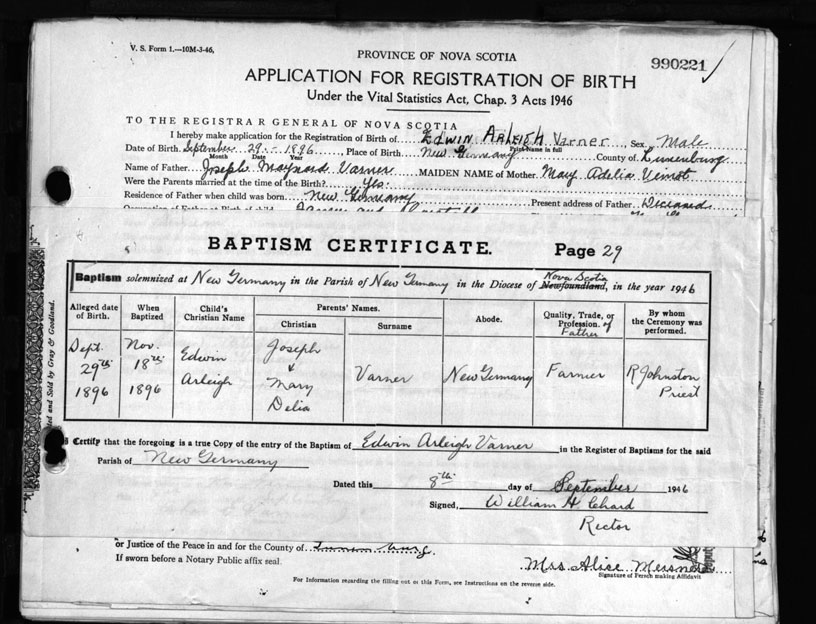 V. S. Form 1.—10M-3-46.
PROVINCE OF NOVA SCOTIA
990221
APPLICATION FOR REGISTRATION OF BIRTH
Under the Vital Statistics Act, Chap. 3 Acts 1946
TO THE REGISTRAR GENERAL OF NOVA SCOTIA
I hereby make application for the Registration of Birth of EDWIN ARLEIGH Varner, Sex Male
Print Name in full
Date of Birth September 29 - 1896, Place of Birth New Germany County of Lunenburg
Month Date Year
Name of Father Joseph Maynard Varner MAIDEN NAME of Mother Mary Adelia
Were the Parents married at the time of the Birth? Yes
Residence of Father when child was born New Germany Present address of Father Deceased
BAPTISM CERTIFICATE. Page 29
Baptism solemnized at New Germany in the Parish of New Germany in the Diocese of Nova Scotia Newfoundland, in the year 1946
Alleged date of Birth. When Baptized Child's Christian Name Parents' Names. Christian Surname Abode. Quality, Trade, or Profession. of Father By whom the Ceremony was performed.
Sept. 29th 1896 Nov. 18th 1896 Edwin Arleigh Joseph & Mary Delia Varner New Germany Farmer R Johnston Priest
Certify that the foregoing is a true Copy of the entry of the Baptism of Edwin Arleigh Varner in the Register of Baptisms for the said
Parish of New Germany
Dated this 8th day of September 1946
Signed, William H Chard
Rector
and Sold by Gray & Goodland.
or Justice of the Peace in and for the County of Lunenburg
If sworn before a Notary Public affix seal.
Mrs Alice Meisner
Signature of Person making Affidavit
For Information regarding the filling out of this Form, see Instructions on the reverse side.